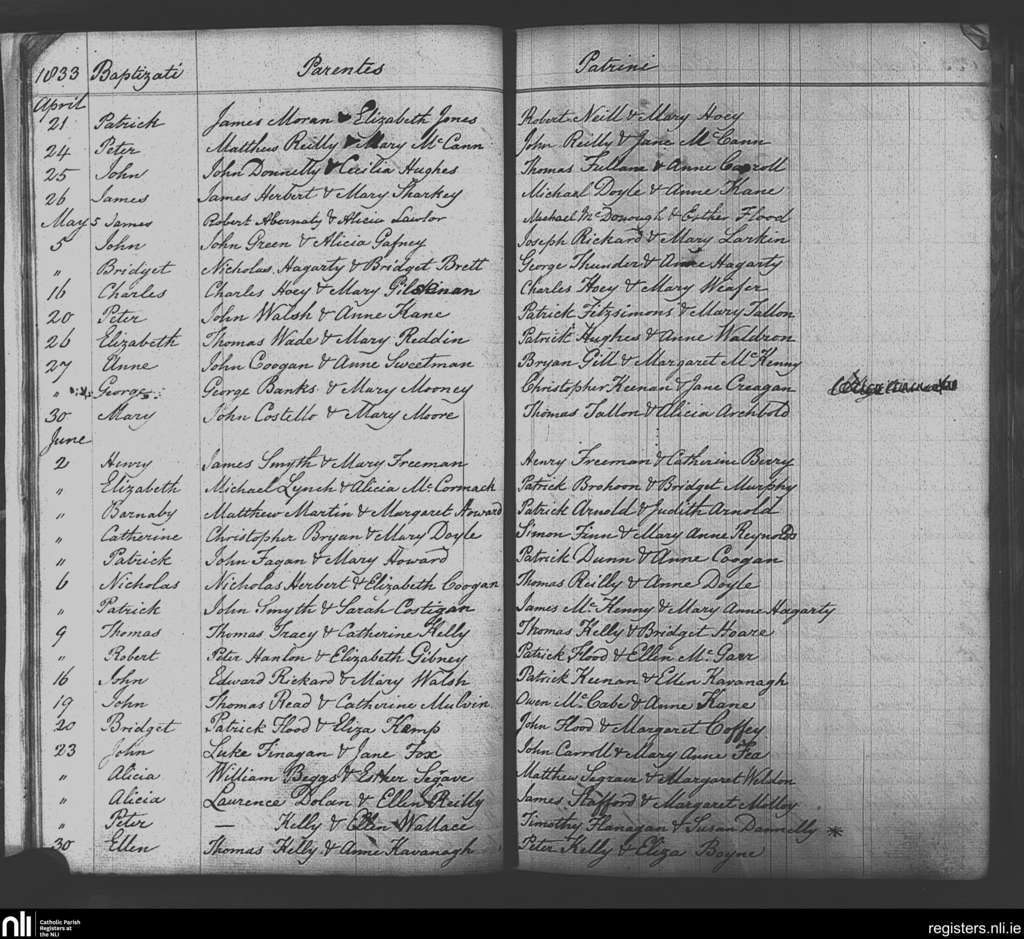 1833 Baptizati Parentes Patrini
April
21 Patrick James Moran & Elizabeth Jones Robert Neill & Mary Hoey
24 Peter Matthew Reilly & Mary McCann John Reilly & Jane McCann
25 John John Donnelly & Cecilia Hughes Thomas Fullam & Anne Carroll
26 James James Herbert & Mary Sharkey Michael Doyle & Anne Kane
May 5 James Robert Abernaty & Alicia Lawlor Michael McDonough & Esther Flood
5 John John Green & Alicia Gafney Joseph Rickard & Mary Larkin
" Bridget Nicholas Hagarty & Bridget Brett George Thunder & Anne Hagarty
16 Charles Charles Hoey & Mary Gilsenan Charles Hoey & Mary Weafer
20 Peter John Walsh & Anne Kane Patrick Fitzsimons & Mary Tallon
26 Elizabeth Thomas Wade & Mary Reddin Patrick Hughes & Anne Waldron
27 Anne John Coogan & Anne Sweetman Bryan Gill & Margaret McKenny
" George George Banks & Mary Mooney Christopher Keenan & Jane Creagan
30 Mary John Costello & Mary Moore Thomas Tallon & Alicia Archbold
June
2 Henry James Smyth & Mary Freeman Henry Freeman & Catherine Berry
" Elizabeth Michael Lynch & Alicia McCormack Patrick Brohoon & Bridget Murphy
" Barnaby Matthew Martin & Margaret Howard Patrick Arnold & Judith Arnold
" Catherine Christopher Bryan & Mary Doyle Simon Finn & Mary Anne Reynolds
" Patrick John Fagan & Mary Howard Patrick Dunn & Anne Coogan
6 Nicholas Nicholas Herbert & Elizabeth Coogan Thomas Reilly & Anne Doyle
" Patrick John Smyth & Sarah Costigan James McKenny & Mary Anne Hagarty
9 Thomas Thomas Tracy & Catherine Kelly Thomas Kelly & Bridget Hoare
" Robert Peter Hanlon & Elizabeth Gibney Patrick Flood & Ellen McGarr
16 John Edward Rickard & Mary Walsh Patrick Keenan & Ellen Kavanagh
19 John Thomas Read & Catherine Mulvin Owen McCabe & Anne Kane
20 Bridget Patrick Flood & Eliza Kemp John Flood & Margaret Coffey
23 John Luke Finagan & Jane Fox John Carroll & Mary Anne Fea
" Alicia William Beggs & Esther Segave Matthew Segrave & Margaret Weldon
" Alicia Laurence Dolan & Ellen Reilly James Stafford & Margaret Molloy
" Peter — Kelly & Ellen Wallace Timothy Flanagan & Susan Dannelly *
30 Ellen Thomas Kelly & Anne Kavanagh Peter Kelly & Eliza Boyne
nli Catholic Parish
Registers at
the NLI
registers.nli.ie